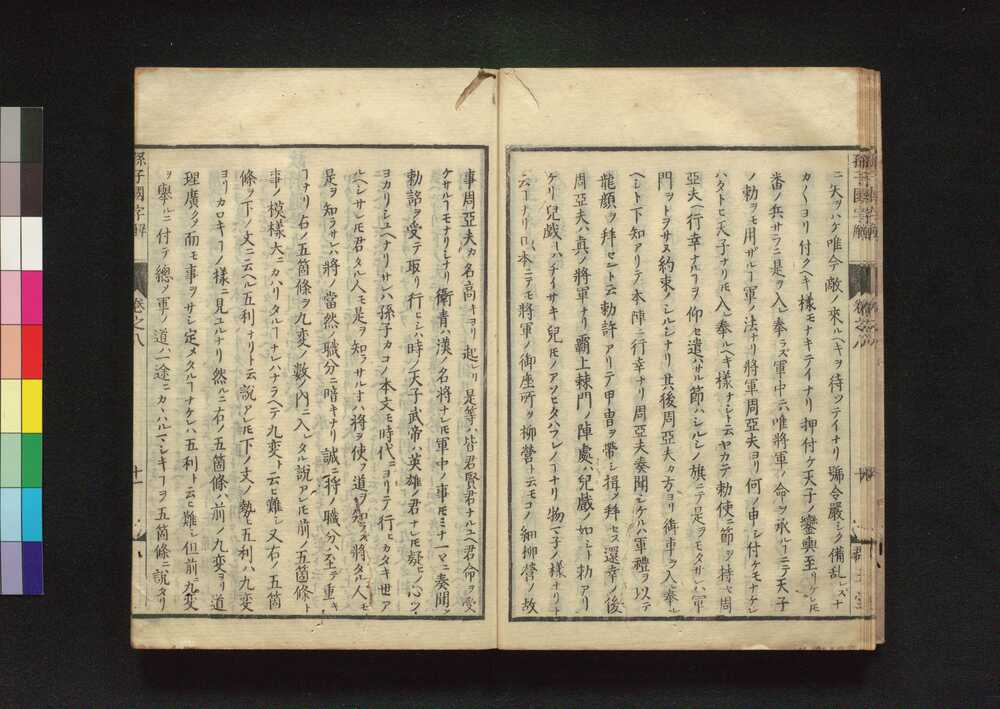 ニ大ツハケ唯今敵ノ來ルヘキヲ待ツテイナリ號令嚴シク備亂レスナ
カ〱ヨリ付クヘキ様モナキテイナリ押付ケ天子ノ鑾輿至リケレ𪜈
畨ノ兵サラニ是ヲ入レ奉ラズ軍中ニハ唯將軍ノ命ヲ承ルヿニテ天子
ノ勅ヲモ用ザルヿ軍ノ法ナリ將軍周亞夫ヨリ何ノ申シ付ケモナケレ
ハタトヒ天子ナリ𪜈入レ奉ルヘキ様ナシト云ヤカテ勅使ニ節ヲ持セ周
亞夫ヘ行幸ナルヿヲ仰セ遣ハサル節ハシルシノ旗ニテ是ヲモタサレハ軍
門ヲトヲサヌ約束ノシルシナリ其後周亞夫カ方ヨリ御車ヲ入レ奉ル
ヘシト下知アリテ本陣ニ行幸ナリ周亞夫奏聞シケルハ軍禮ヲ以テ
龍顔ヲ拜セント云勅許アリテ甲冑ヲ帶シ揖ノ拜セス還幸ノ後
周亞夫ハ真ノ將軍ナリ霸上棘門ノ陣處ハ兒戲ノ如シト勅アリ
ケリ兒戲トハチイサキ兒𪜈ノアソビタハフレノヿナリ物マ子ノ様ナリト
云ヿナリ日本ニテモ將軍ノ御座所ヲ柳營ト云モコノ細柳營ノ故
事周亞夫カ名高キヨリ起レリ是等ハ皆君賢君ナルユヘ君命ヲ受
ケサルヿモナリシナリ衛青ハ漢ノ名將ナレ𪜈軍中ノ事𪜈ミナ一〻ニ奏聞シ
勅諚ヲ受テ取リ行ヒシハ時ノ天子武帝ハ英雄ノ君ナレ𪜈疑ヒノ心ツ
ヨカリシユヘナリサレハ孫子カコノ本文モ時代ニヨリテ行ヒカタキ世ア
ルヘシサレ𪜈君タル人モ是ヲ知ラサル寸ハ將ヲ使フ道ヲ知ラズ將タル人モ
是ヲ知ラサレハ將ノ當然ノ職分ニ暗キナリ誠ニ將ノ職分ハ至テ重キ
ヿナリ右ノ五箇條ヲ九変ノ數ノ内ニ入レタル説アレ𪜈前ノ五箇條ト
事ノ模樣大ニカハリタルヿナレハナラヘテ九変ト云ヒ難シ又右ノ五箇
條ヲ下ノ文ニ云ヘル五利ナリト云説アレ𪜈下ノ文ノ勢ヒ五利ハ九変
ヨリカロキヿノ樣ニ見ユルナリ然ルニ右ノ五箇條ハ前ノ九変ヨリ道
理廣クノ而モ事ヲサシ定メタルヿナケレハ五利ト云ヒ難シ但前ニ九変
ヲ舉ルニ付テ總ノ軍ノ道ハ一途ニカヽハルマシキヿヲ五箇條ニ説タリ
孫子國字解
卷之八
十一